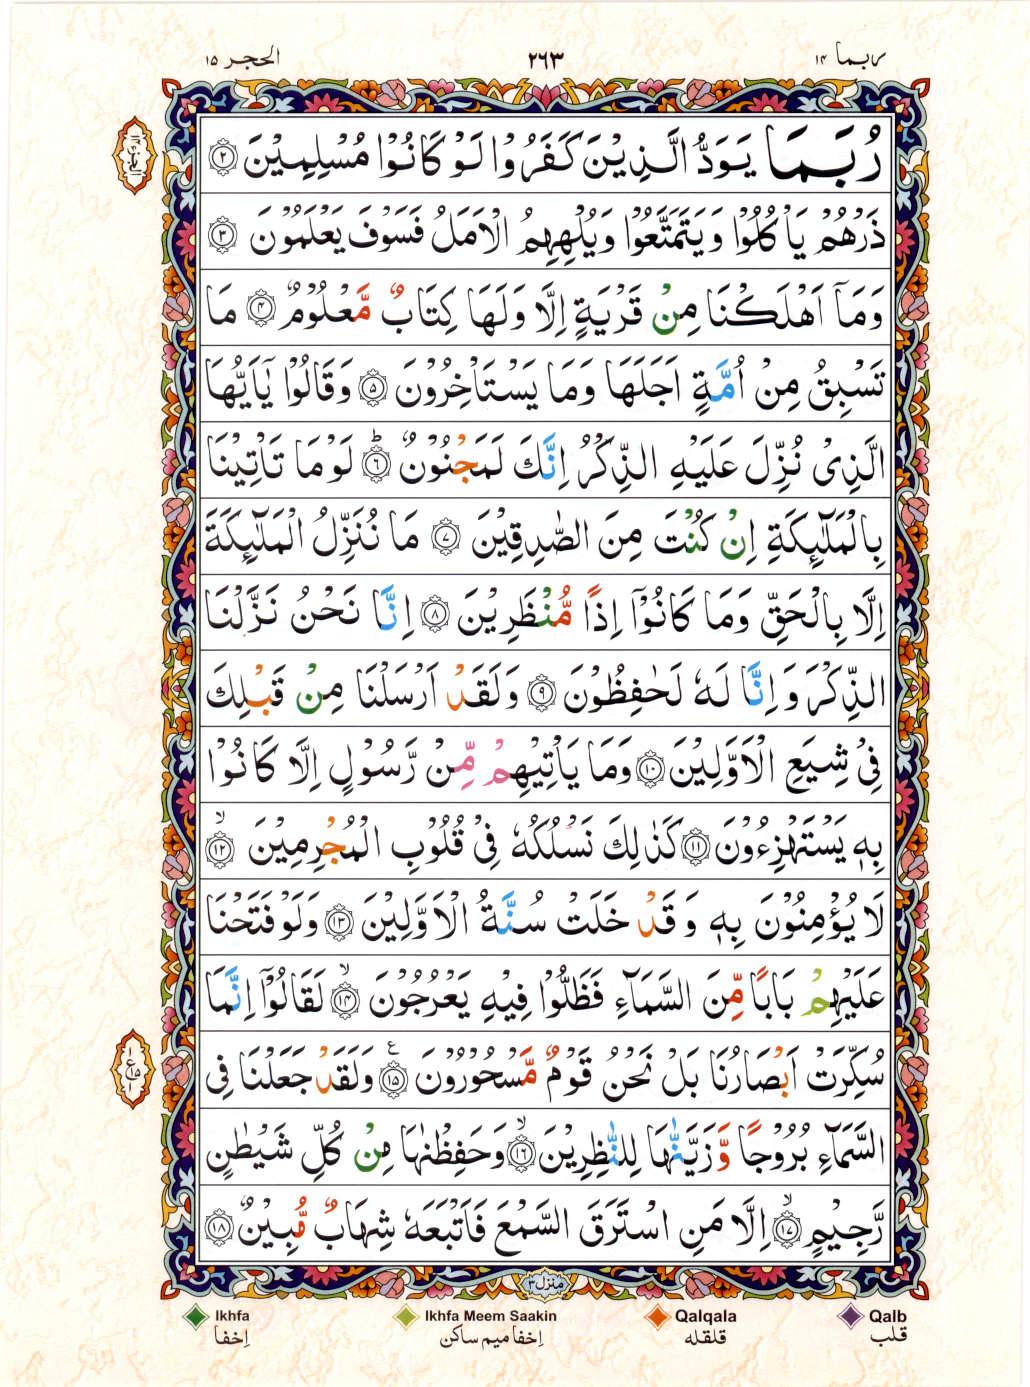 ربما ١٤
٢٦٣
الحجر ١٥
رُبَمَا يَوَدُّ الَّذِيْنَ كَفَرُوْا لَوْ كَانُوْا مُسْلِمِيْنَ ۝٢
ذَرْهُمْ يَاْكُلُوْا وَيَتَمَتَّعُوْا وَيُلْهِهِمُ الْاَمَلُ فَسَوْفَ يَعْلَمُوْنَ ۝٣
وَمَآ اَهْلَكْنَا مِنْ قَرْيَةٍ اِلَّا وَلَهَا كِتَابٌ مَّعْلُوْمٌ ۝٤ مَا
تَسْبِقُ مِنْ اُمَّةٍ اَجَلَهَا وَمَا يَسْتَاْخِرُوْنَ ۝٥ وَقَالُوْا يٰٓاَيُّهَا
الَّذِيْ نُزِّلَ عَلَيْهِ الذِّكْرُ اِنَّكَ لَمَجْنُوْنٌ ۝٦ؕ لَوْ مَا تَاْتِيْنَا
بِالْمَلٰٓئِكَةِ اِنْ كُنْتَ مِنَ الصّٰدِقِيْنَ ۝٧ مَا نُنَزِّلُ الْمَلٰٓئِكَةَ
اِلَّا بِالْحَقِّ وَمَا كَانُوْٓا اِذًا مُّنْظَرِيْنَ ۝٨ اِنَّا نَحْنُ نَزَّلْنَا
الذِّكْرَ وَاِنَّا لَهٗ لَحٰفِظُوْنَ ۝٩ وَلَقَدْ اَرْسَلْنَا مِنْ قَبْلِكَ
فِيْ شِيَعِ الْاَوَّلِيْنَ ۝١٠ وَمَا يَاْتِيْهِمْ مِّنْ رَّسُوْلٍ اِلَّا كَانُوْا
بِهٖ يَسْتَهْزِءُوْنَ ۝١١ كَذٰلِكَ نَسْلُكُهٗ فِيْ قُلُوْبِ الْمُجْرِمِيْنَ ۝١٢ۙ
لَا يُؤْمِنُوْنَ بِهٖ وَقَدْ خَلَتْ سُنَّةُ الْاَوَّلِيْنَ ۝١٣ وَلَوْ فَتَحْنَا
عَلَيْهِمْ بَابًا مِّنَ السَّمَآءِ فَظَلُّوْا فِيْهِ يَعْرُجُوْنَ ۝١٤ۙ لَقَالُوْٓا اِنَّمَا
سُكِّرَتْ اَبْصَارُنَا بَلْ نَحْنُ قَوْمٌ مَّسْحُوْرُوْنَ ۝١٥ع وَلَقَدْ جَعَلْنَا فِي
السَّمَآءِ بُرُوْجًا وَّزَيَّنّٰهَا لِلنّٰظِرِيْنَ ۝١٦ۙ وَحَفِظْنٰهَا مِنْ كُلِّ شَيْطٰنٍ
رَّجِيْمٍ ۝١٧ۙ اِلَّا مَنِ اسْتَرَقَ السَّمْعَ فَاَتْبَعَهٗ شِهَابٌ مُّبِيْنٌ ۝١٨
منزل ٣
Ikhfa
اِخفا
Ikhfa Meem Saakin
اِخفا میم ساکن
Qalqala
قلقلہ
Qalb
قلب